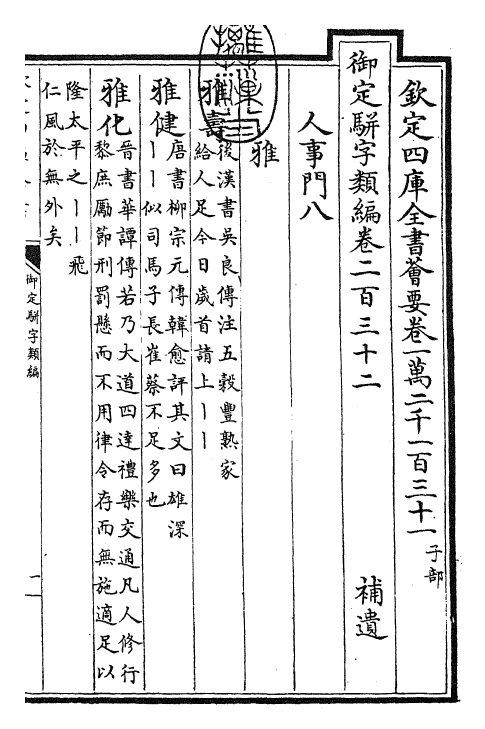 欽定四庫全書薈要卷一萬二千一百三十一子部
御定駢字類編卷二百三十二 補遺
人事門八
雅
雅壽後漢書吳良傳注五穀豐熟家
給人足今日歲首請上〡〡
雅健唐書柳宗元傳韓愈評其文曰雄深
〡〡似司馬子長崔蔡不足多也
雅化晉書華譚傳若乃大道四達禮樂交通凡人修行
黎庶勵節刑罰懸而不用律令存而無施適足以
隆太平之〡〡飛
仁風於無外矣
御定駢字類編
一